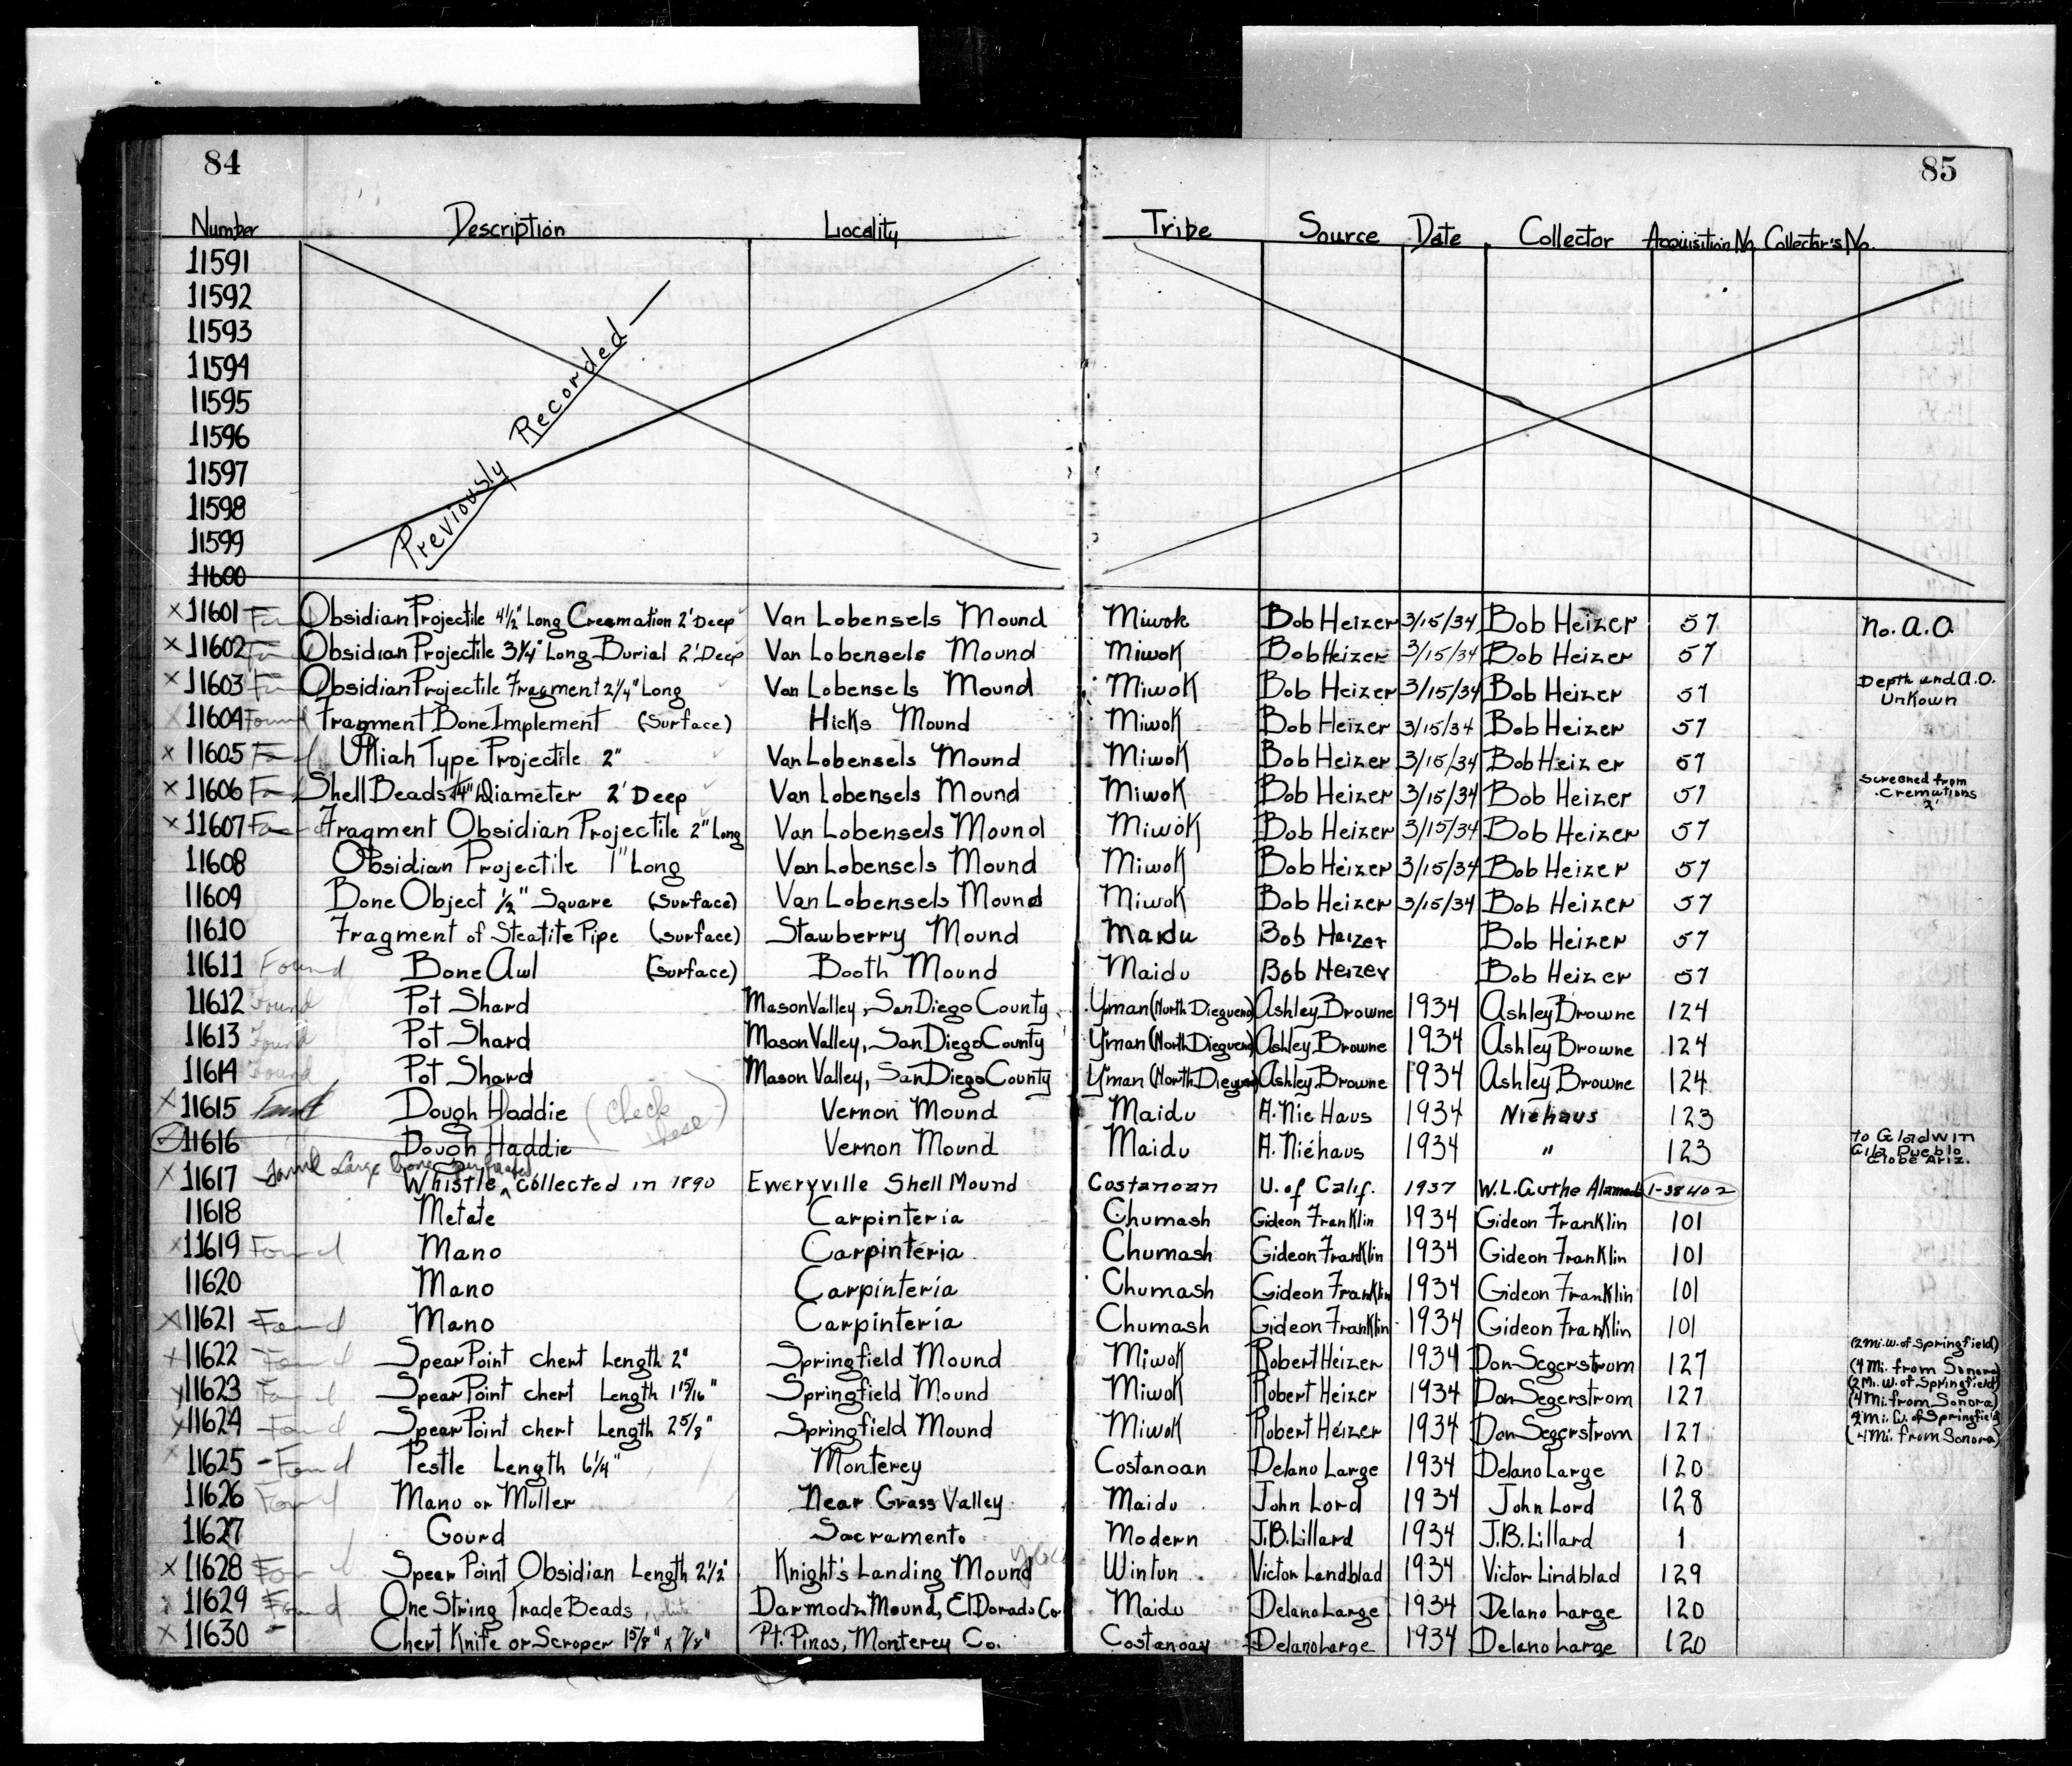 84
85
Number Description Locality Tribe Source Date Collector Acquisition No. Collector's No.
11591
11592
11593
11594
11595
11596
11597
11598
11599
11600
Previously Recorded —
X 11601 Obsidian Projectile 4½" Long Creamation 2' Deep Van Lobensels Mound Miwok Bob Heizer 3/15/34 Bob Heizer 57 No. A.O.
X 11602 Obsidian Projectile 3¼" Long Burial 2' Deep Van Lobensels Mound Miwok Bob Heizer 3/15/34 Bob Heizer 57
X 11603 Obsidian Projectile Fragment 2¼" Long Van Lobensels Mound Miwok Bob Heizer 3/15/34 Bob Heizer 57 Depth and A.O. Unkown
X 11604 Found Fragment Bone Implement (Surface) Hicks Mound Miwok Bob Heizer 3/15/34 Bob Heizer 57
X 11605 Found Ukiah Type Projectile 2" Van Lobensels Mound Miwok Bob Heizer 3/15/34 Bob Heizer 57
X 11606 Found Shell Beads ¼" Diameter 2' Deep Van Lobensels Mound Miwok Bob Heizer 3/15/34 Bob Heizer 57 Screened from Cremations 2'
X 11607 Found Fragment Obsidian Projectile 2" Long Van Lobensels Mound Miwok Bob Heizer 3/15/34 Bob Heizer 57
11608 Obsidian Projectile 1" Long Van Lobensels Mound Miwok Bob Heizer 3/15/34 Bob Heizer 57
11609 Bone Object ½" Square (Surface) Van Lobensels Mound Miwok Bob Heizer 3/15/34 Bob Heizer 57
11610 Fragment of Steatite Pipe (Surface) Stawberry Mound Maidu Bob Heizer Bob Heizer 57
11611 Found Bone Awl (Surface) Booth Mound Maidu Bob Heizer Bob Heizer 57
11612 Found Pot Shard Mason Valley, San Diego County Yman (North Diegueno) Ashley Browne 1934 Ashley Browne 124
11613 Found Pot Shard Mason Valley, San Diego County Yman (North Diegueno) Ashley Browne 1934 Ashley Browne 124
11614 Found Pot Shard Mason Valley, San Diego County Yman (North Diegueno) Ashley Browne 1934 Ashley Browne 124
X 11615 Found Dough Haddie (Check these) Vernon Mound Maidu A. Nie Haus 1934 Niehaus 123
11616 Dough Haddie Vernon Mound Maidu A. Niehaus 1934 " 123 to Gladwin Gila Pueblo Globe Ariz.
X 11617 Found Large bone perforated Whistle, collected in 1890 Eweryville Shell Mound Costanoan U. of Calif. 1937 W.L. Guthe Alameda 1-38402
11618 Metate Carpinteria Chumash Gideon Franklin 1934 Gideon Franklin 101
X 11619 Found Mano Carpinteria Chumash Gideon Franklin 1934 Gideon Franklin 101
11620 Mano Carpinteria Chumash Gideon Franklin 1934 Gideon Franklin 101
X 11621 Found Mano Carpinteria Chumash Gideon Franklin 1934 Gideon Franklin 101
X 11622 Found Spear Point chert Length 2" Springfield Mound Miwok Robert Heizer 1934 Don Segerstrom 127 (2 Mi. W. of Springfield) (4 Mi. from Sonora)
X 11623 Found Spear Point chert Length 1 15/16" Springfield Mound Miwok Robert Heizer 1934 Don Segerstrom 127 (2 Mi. W. of Springfield) (4 Mi. from Sonora)
X 11624 Found Spear Point chert Length 2 5/8" Springfield Mound Miwok Robert Heizer 1934 Don Segerstrom 127 2 Mi. W. of Springfield (4 Mi. from Sonora)
X 11625 - Found Pestle Length 6¼" Monterey Costanoan Delano Large 1934 Delano Large 120
11626 Found Mano or Muller Near Grass Valley Maidu John Lord 1934 John Lord 128
11627 Gourd Sacramento Modern J.B. Lillard 1934 J.B. Lillard 1
X 11628 Found Spear Point Obsidian Length 2½" Knight's Landing Mound Yolo Wintun Victor Landblad 1934 Victor Lindblad 129
11629 Found One String Trade Beads, white Darmodz Mound, El Dorado Co. Maidu Delano Large 1934 Delano Large 120
X 11630 - Chert Knife or Scraper 1 5/8" x 7/8" Pt. Pinos, Monterey Co. Costanoan Delano Large 1934 Delano Large 120